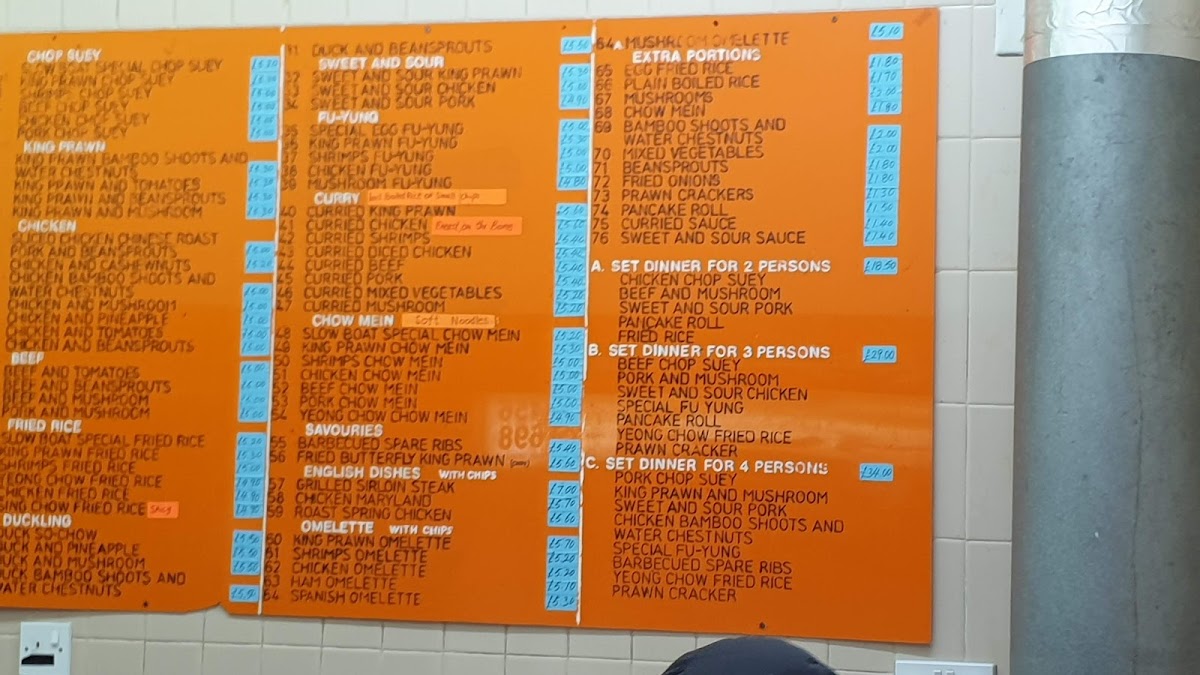 CHOP SUEY
SLOW BOAT SPECIAL CHOP SUEY £5.20
KING PRAWN CHOP SUEY
SHRIMPS CHOP SUEY
BEEF CHOP SUEY
CHICKEN CHOP SUEY
PORK CHOP SUEY
KING PRAWN
KING PRAWN BAMBOO SHOOTS AND
WATER CHESTNUTS £5.30
KING PRAWN AND TOMATOES £5.30
KING PRAWN AND BEANSPROUTS £5.30
KING PRAWN AND MUSHROOM £5.30
CHICKEN
SLICED CHICKEN CHINESE ROAST
PORK AND BEANSPROUTS
CHICKEN AND CASHEWNUTS £5.20
CHICKEN BAMBOO SHOOTS AND
WATER CHESTNUTS £5.00
CHICKEN AND MUSHROOM £5.00
CHICKEN AND PINEAPPLE £5.00
CHICKEN AND TOMATOES £5.00
CHICKEN AND BEANSPROUTS £5.00
BEEF
BEEF AND TOMATOES £5.00
BEEF AND BEANSPROUTS £5.00
BEEF AND MUSHROOM £5.00
PORK AND MUSHROOM £5.00
FRIED RICE
SLOW BOAT SPECIAL FRIED RICE £5.20
KING PRAWN FRIED RICE £5.30
SHRIMPS FRIED RICE £5.00
YEONG CHOW FRIED RICE £4.90
CHICKEN FRIED RICE £4.80
SING CHOW FRIED RICE SPICY £4.90
DUCKLING
DUCK SO-CHOW £5.50
DUCK AND PINEAPPLE £5.50
DUCK AND MUSHROOM £5.50
DUCK BAMBOO SHOOTS AND
WATER CHESTNUTS £5.50
31 DUCK AND BEANSPROUTS £5.50
SWEET AND SOUR
32 SWEET AND SOUR KING PRAWN £5.30
33 SWEET AND SOUR CHICKEN £5.00
34 SWEET AND SOUR PORK £4.90
FU-YUNG
35 SPECIAL EGG FU-YUNG £5.00
36 KING PRAWN FU-YUNG £5.30
37 SHRIMPS FU-YUNG £5.00
38 CHICKEN FU-YUNG £5.00
39 MUSHROOM FU-YUNG £4.80
CURRY Boiled Rice or Small Chips
40 CURRIED KING PRAWN £5.60
41 CURRIED CHICKEN Breast on the Bone
42 CURRIED SHRIMPS £5.40
43 CURRIED DICED CHICKEN £5.40
44 CURRIED BEEF £5.40
45 CURRIED PORK £5.40
46 CURRIED MIXED VEGETABLES £5.20
47 CURRIED MUSHROOM £5.20
CHOW MEIN Soft Noodles
48 SLOW BOAT SPECIAL CHOW MEIN £5.20
49 KING PRAWN CHOW MEIN £5.30
50 SHRIMPS CHOW MEIN £5.00
51 CHICKEN CHOW MEIN £5.00
52 BEEF CHOW MEIN £5.00
53 PORK CHOW MEIN £5.00
54 YEONG CHOW CHOW MEIN £4.90
SAVOURIES
55 BARBECUED SPARE RIBS £5.40
56 FRIED BUTTERFLY KING PRAWN £5.60
ENGLISH DISHES WITH CHIPS
57 GRILLED SIRLOIN STEAK £7.00
58 CHICKEN MARYLAND £5.70
59 ROAST SPRING CHICKEN £5.60
OMELETTE WITH CHIPS
60 KING PRAWN OMELETTE £5.70
61 SHRIMPS OMELETTE £5.20
62 CHICKEN OMELETTE £5.20
63 HAM OMELETTE £5.10
64 SPANISH OMELETTE £5.30
64A MUSHROOM OMELETTE £5.10
EXTRA PORTIONS
65 EGG FRIED RICE £1.80
66 PLAIN BOILED RICE £1.70
67 MUSHROOMS £2.00
68 CHOW MEIN £1.80
69 BAMBOO SHOOTS AND
WATER CHESTNUTS £2.00
70 MIXED VEGETABLES £2.00
71 BEANSPROUTS £1.80
72 FRIED ONIONS £1.80
73 PRAWN CRACKERS £1.30
74 PANCAKE ROLL £1.50
75 CURRIED SAUCE £1.40
76 SWEET AND SOUR SAUCE £1.40
A. SET DINNER FOR 2 PERSONS £18.50
CHICKEN CHOP SUEY
BEEF AND MUSHROOM
SWEET AND SOUR PORK
PANCAKE ROLL
FRIED RICE
B. SET DINNER FOR 3 PERSONS £29.00
BEEF CHOP SUEY
PORK AND MUSHROOM
SWEET AND SOUR CHICKEN
SPECIAL FU YUNG
PANCAKE ROLL
YEONG CHOW FRIED RICE
PRAWN CRACKER
C. SET DINNER FOR 4 PERSONS £34.00
PORK CHOP SUEY
KING PRAWN AND MUSHROOM
SWEET AND SOUR PORK
CHICKEN BAMBOO SHOOTS AND
WATER CHESTNUTS
SPECIAL FU-YUNG
BARBECUED SPARE RIBS
YEONG CHOW FRIED RICE
PRAWN CRACKER